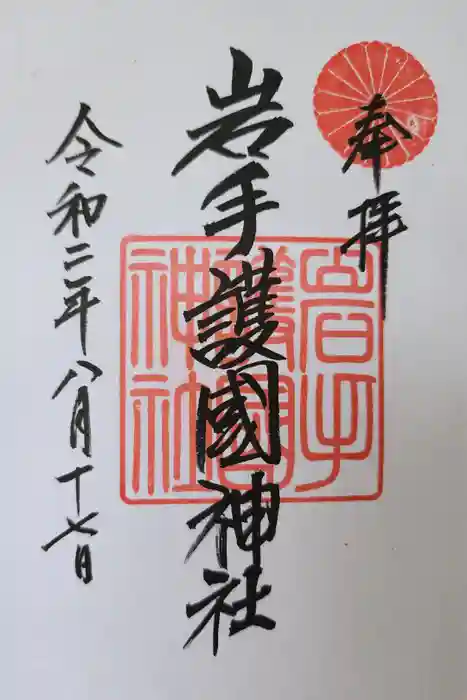 奉拝
岩手護國神社
岩手
護國
神社
令和二年八月十七日